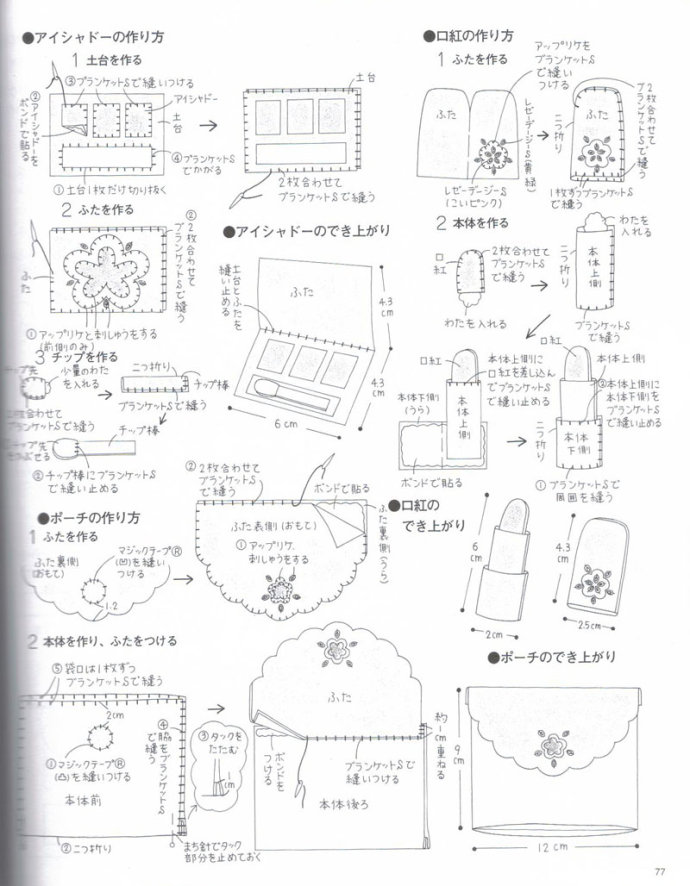 ●アイシャドーの作り方
1 土台を作る
③ブランケットSで縫いつける
②アイシャドーを
ボンドで貼る
アイシャドー
土台
④ブランケットS
でかがる
①土台1枚だけ切り抜く
土台
2枚合わせて
ブランケットSで縫う
2 ふたを作る
②2枚合わせて
ブランケットSで縫う
ふた
①アップリケと刺しゅうをする
(前側のみ)
3 チップを作る
チップ先
少量のわた
を入れる
2枚合わせて
ブランケットSで縫う
二つ折り
チップ棒
ブランケットSで縫う
チップ棒
②チップ棒にブランケットS
で縫い止める
●アイシャドーのでき上がり
土台とふたを
縫い止める
ふた
4.3
cm
4.3
cm
6cm
●口紅の作り方
1 ふたを作る
アップリケを
ブランケットS
で縫い
つける
ふた
レゼーデージーS(黄緑)
レゼーデージーS
(こいピンク)
二つ折り
ふた
2枚合わせて
ブランケットSで縫う
1枚ずつブランケットS
で縫う
2 本体を作る
口紅
2枚合わせて
ブランケットS
で縫う
わたを入れる
わたを
入れる
二つ折り
本体上側
ブランケットS
で縫う
口紅
本体上側に
口紅を差し込ん
でブランケットS
で縫い止める
本体下側
(うら)
本体上側
ボンドで貼る
口紅
本体上側
②本体上側に
本体下側を
ブランケットS
で縫い止める
二つ折り
本体
下側
①ブランケットSで
周囲を縫う
●口紅の
でき上がり
6
cm
2cm
4.3
cm
2.5cm
●ポーチの作り方
1 ふたを作る
ふた裏側
(おもて)
マジックテープⓇ
(凹)を縫い
つける
1.2
②2枚合わせて
ブランケットS
で縫う
ボンドで貼る
ふた表側(おもて)
①アップリケ、
刺しゅうをする
ふた裏側(うら)
2 本体を作り、ふたをつける
⑤袋口は1枚ずつ
ブランケットSで縫う
2cm
①マジックテープⓇ
(凸)を縫いつける
本体前
②二つ折り
④脇をブランケットS
で縫う
③タックを
たたむ
1cm
まち針でタック
部分を止めておく
ふた
ボンドを
つける
ブランケットSで
縫いつける
約1cm重ねる
本体後ろ
●ポーチのでき上がり
9
cm
12cm
77